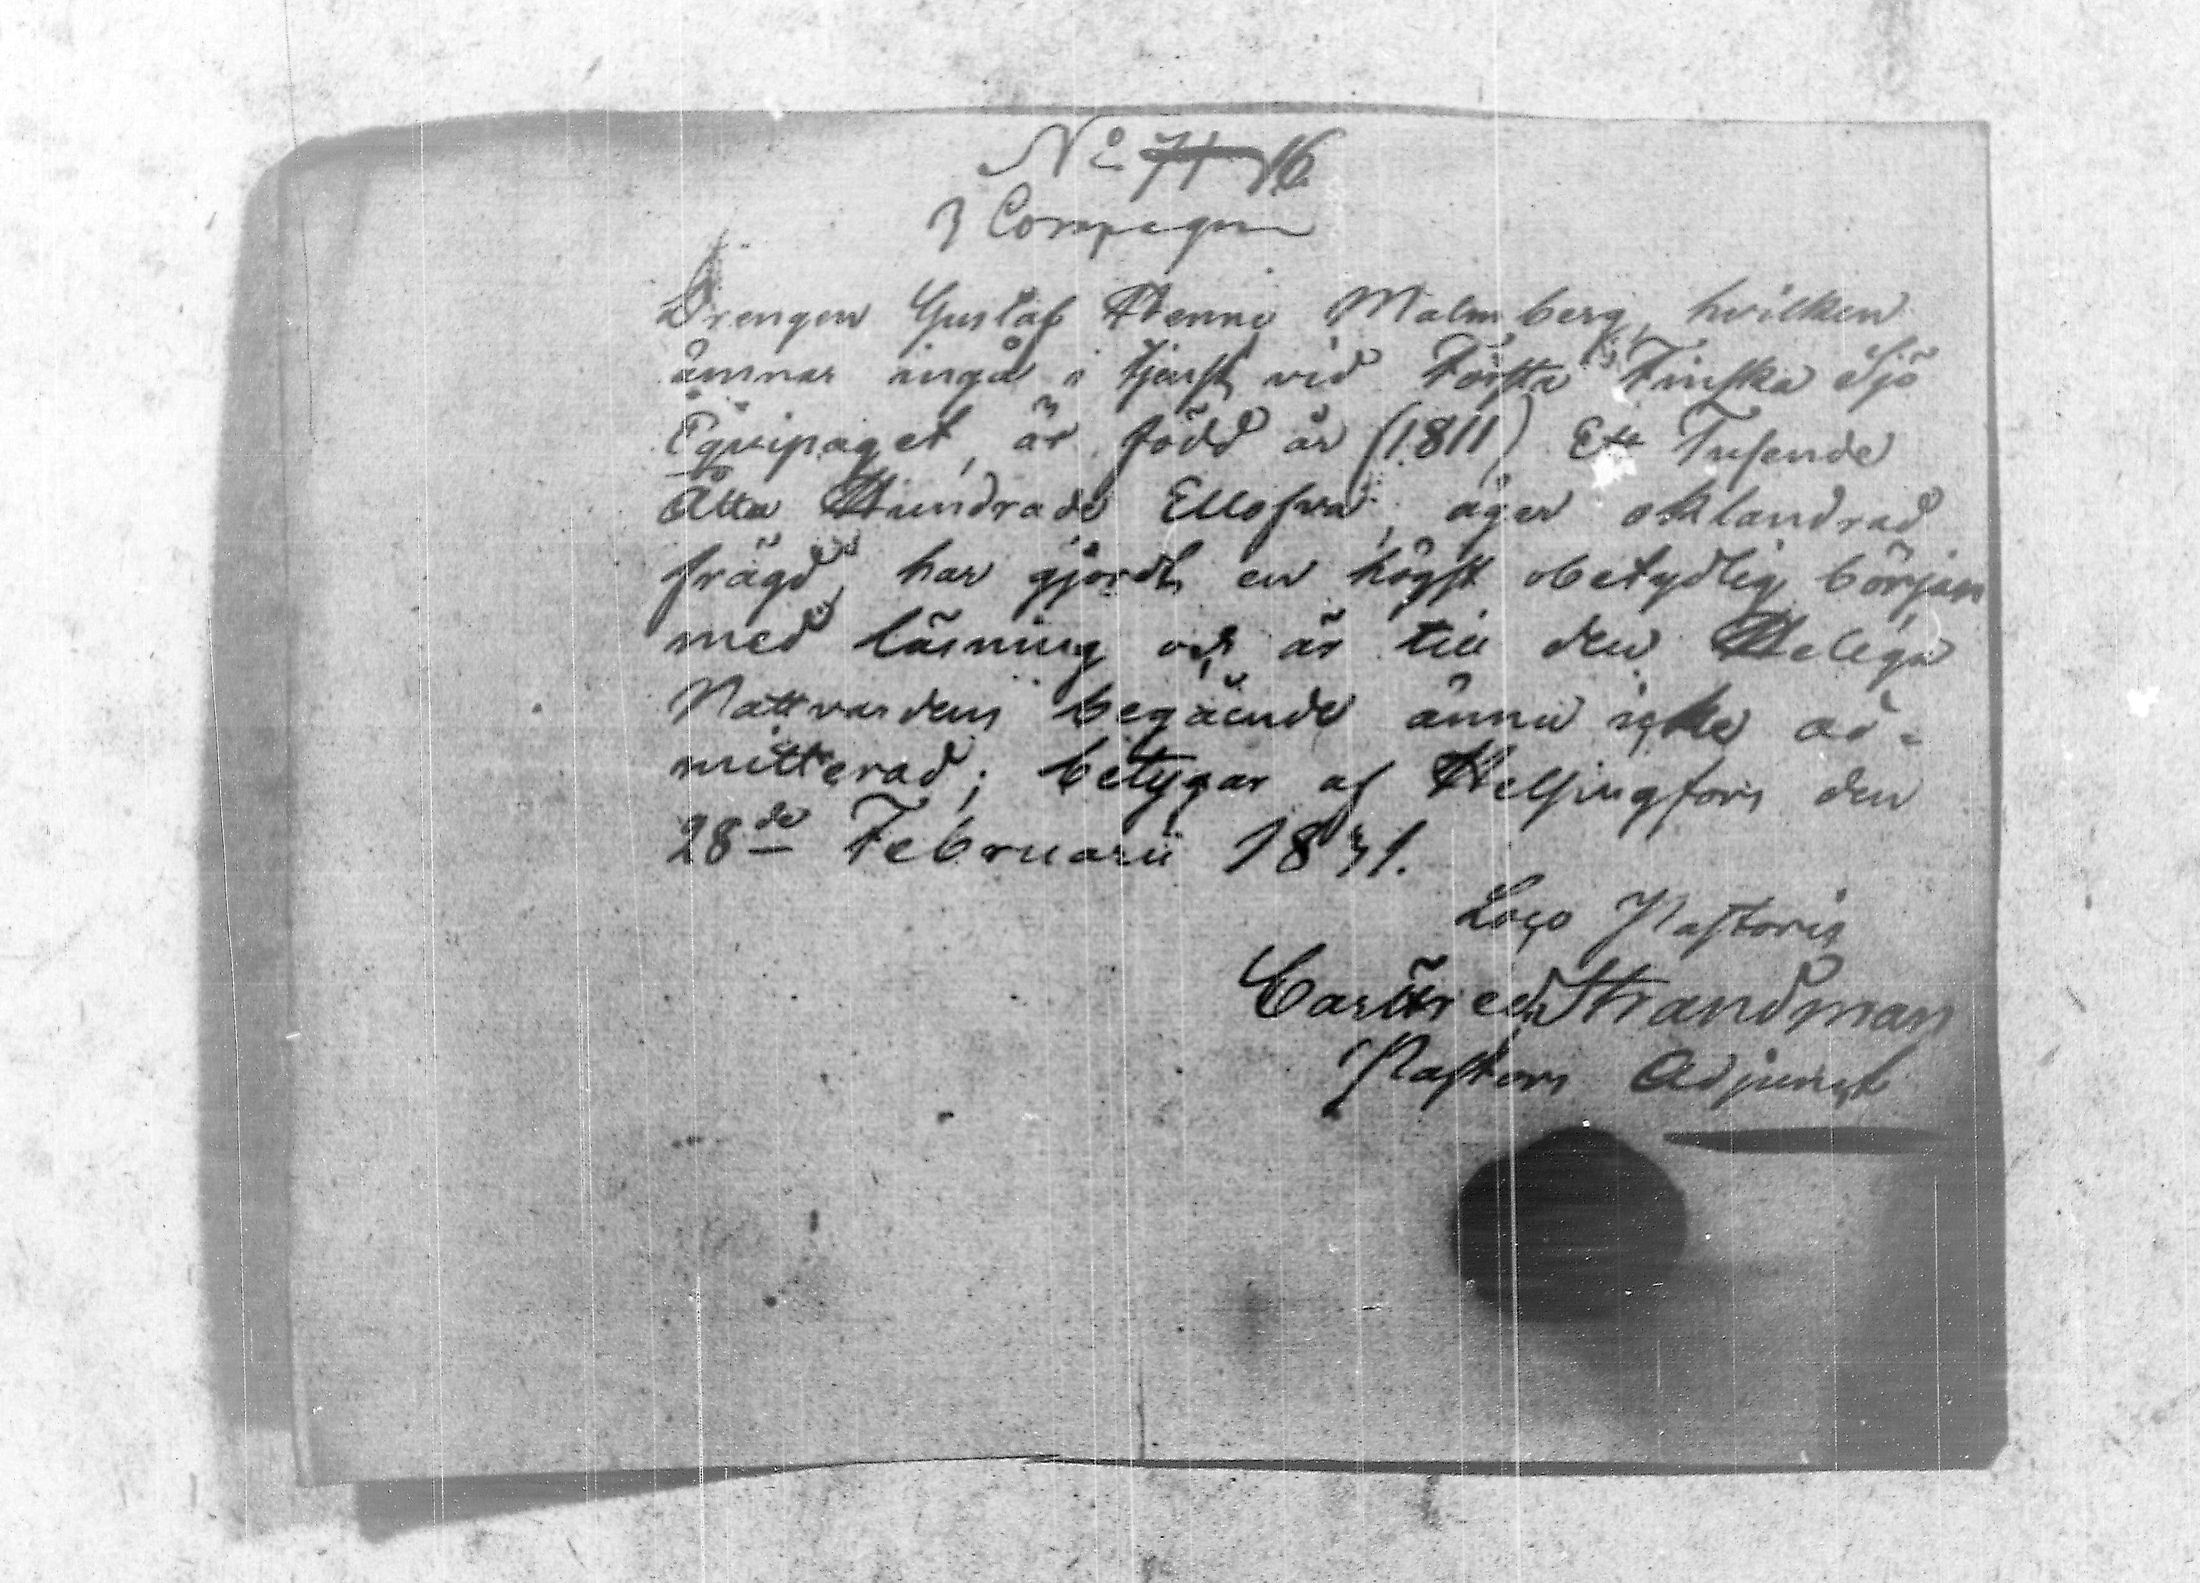 No 71 16
3 Compagni
Drengen Gustaf Henric Malmberg, hvilken
ämnar ingå i tjenst vid Första Finska Sjö
Equipaget, är född år (1811) Ett Tusende
Åtta Hundrade Ellofva, äger oklandrad
frägd, har gjordt en högst obetydlig början
med läsning och är till den Heliga
Nattvardens begående ännu icke ad-
mitterad; betygar af Helsingfors den
28de Februarii 1831.
Loco Pastoris
Strandman
Pastors Adjunct